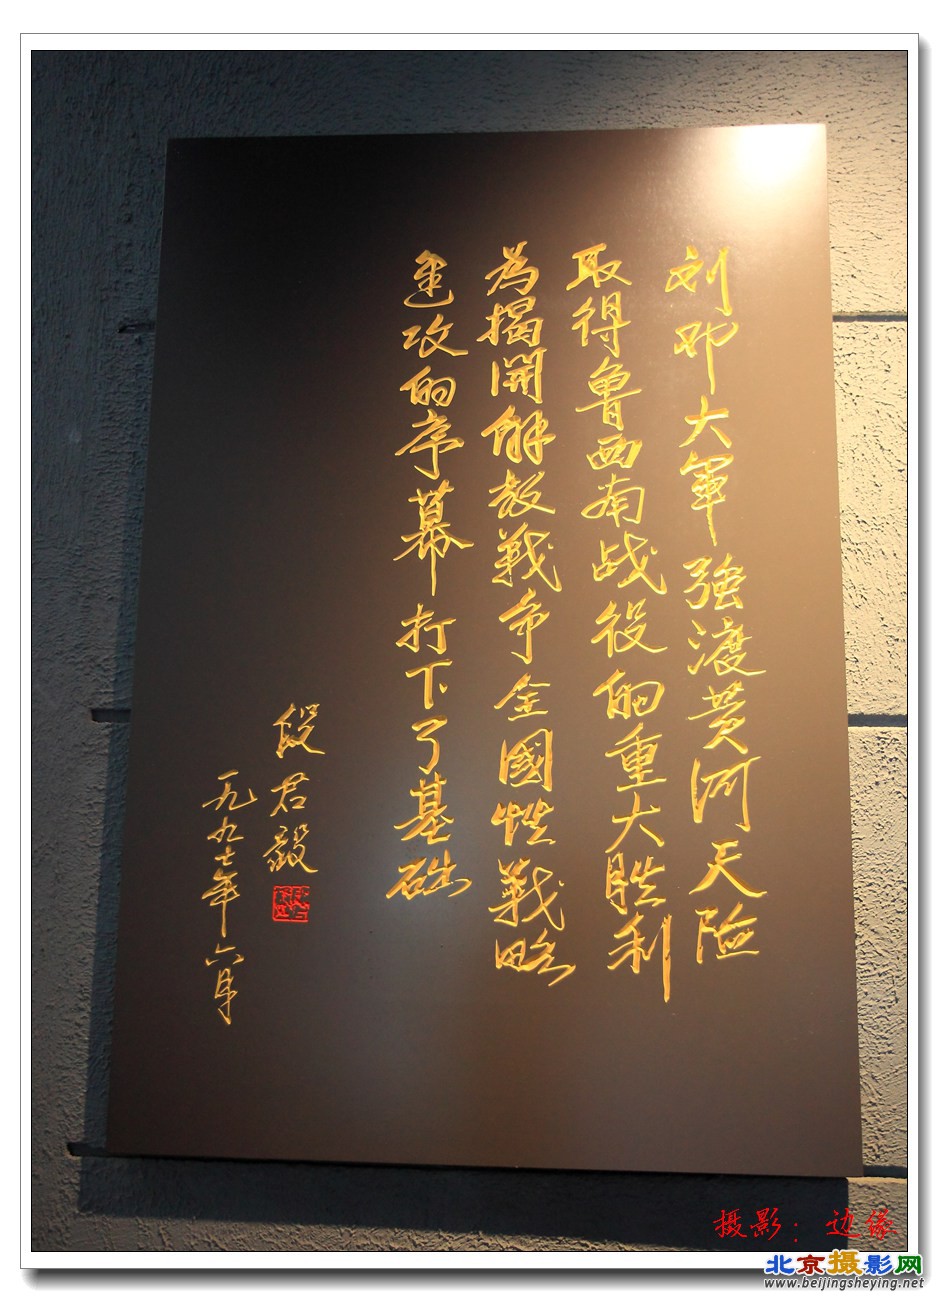 刘邓大军強渡黄河天险
取得鲁西南战役的重大胜利
为揭開解放戦争全國性戦略
进攻的序幕打下了基础
段君毅
一九九七年六月
摄影：边缘
北京摄影网
www.beijingsheying.net